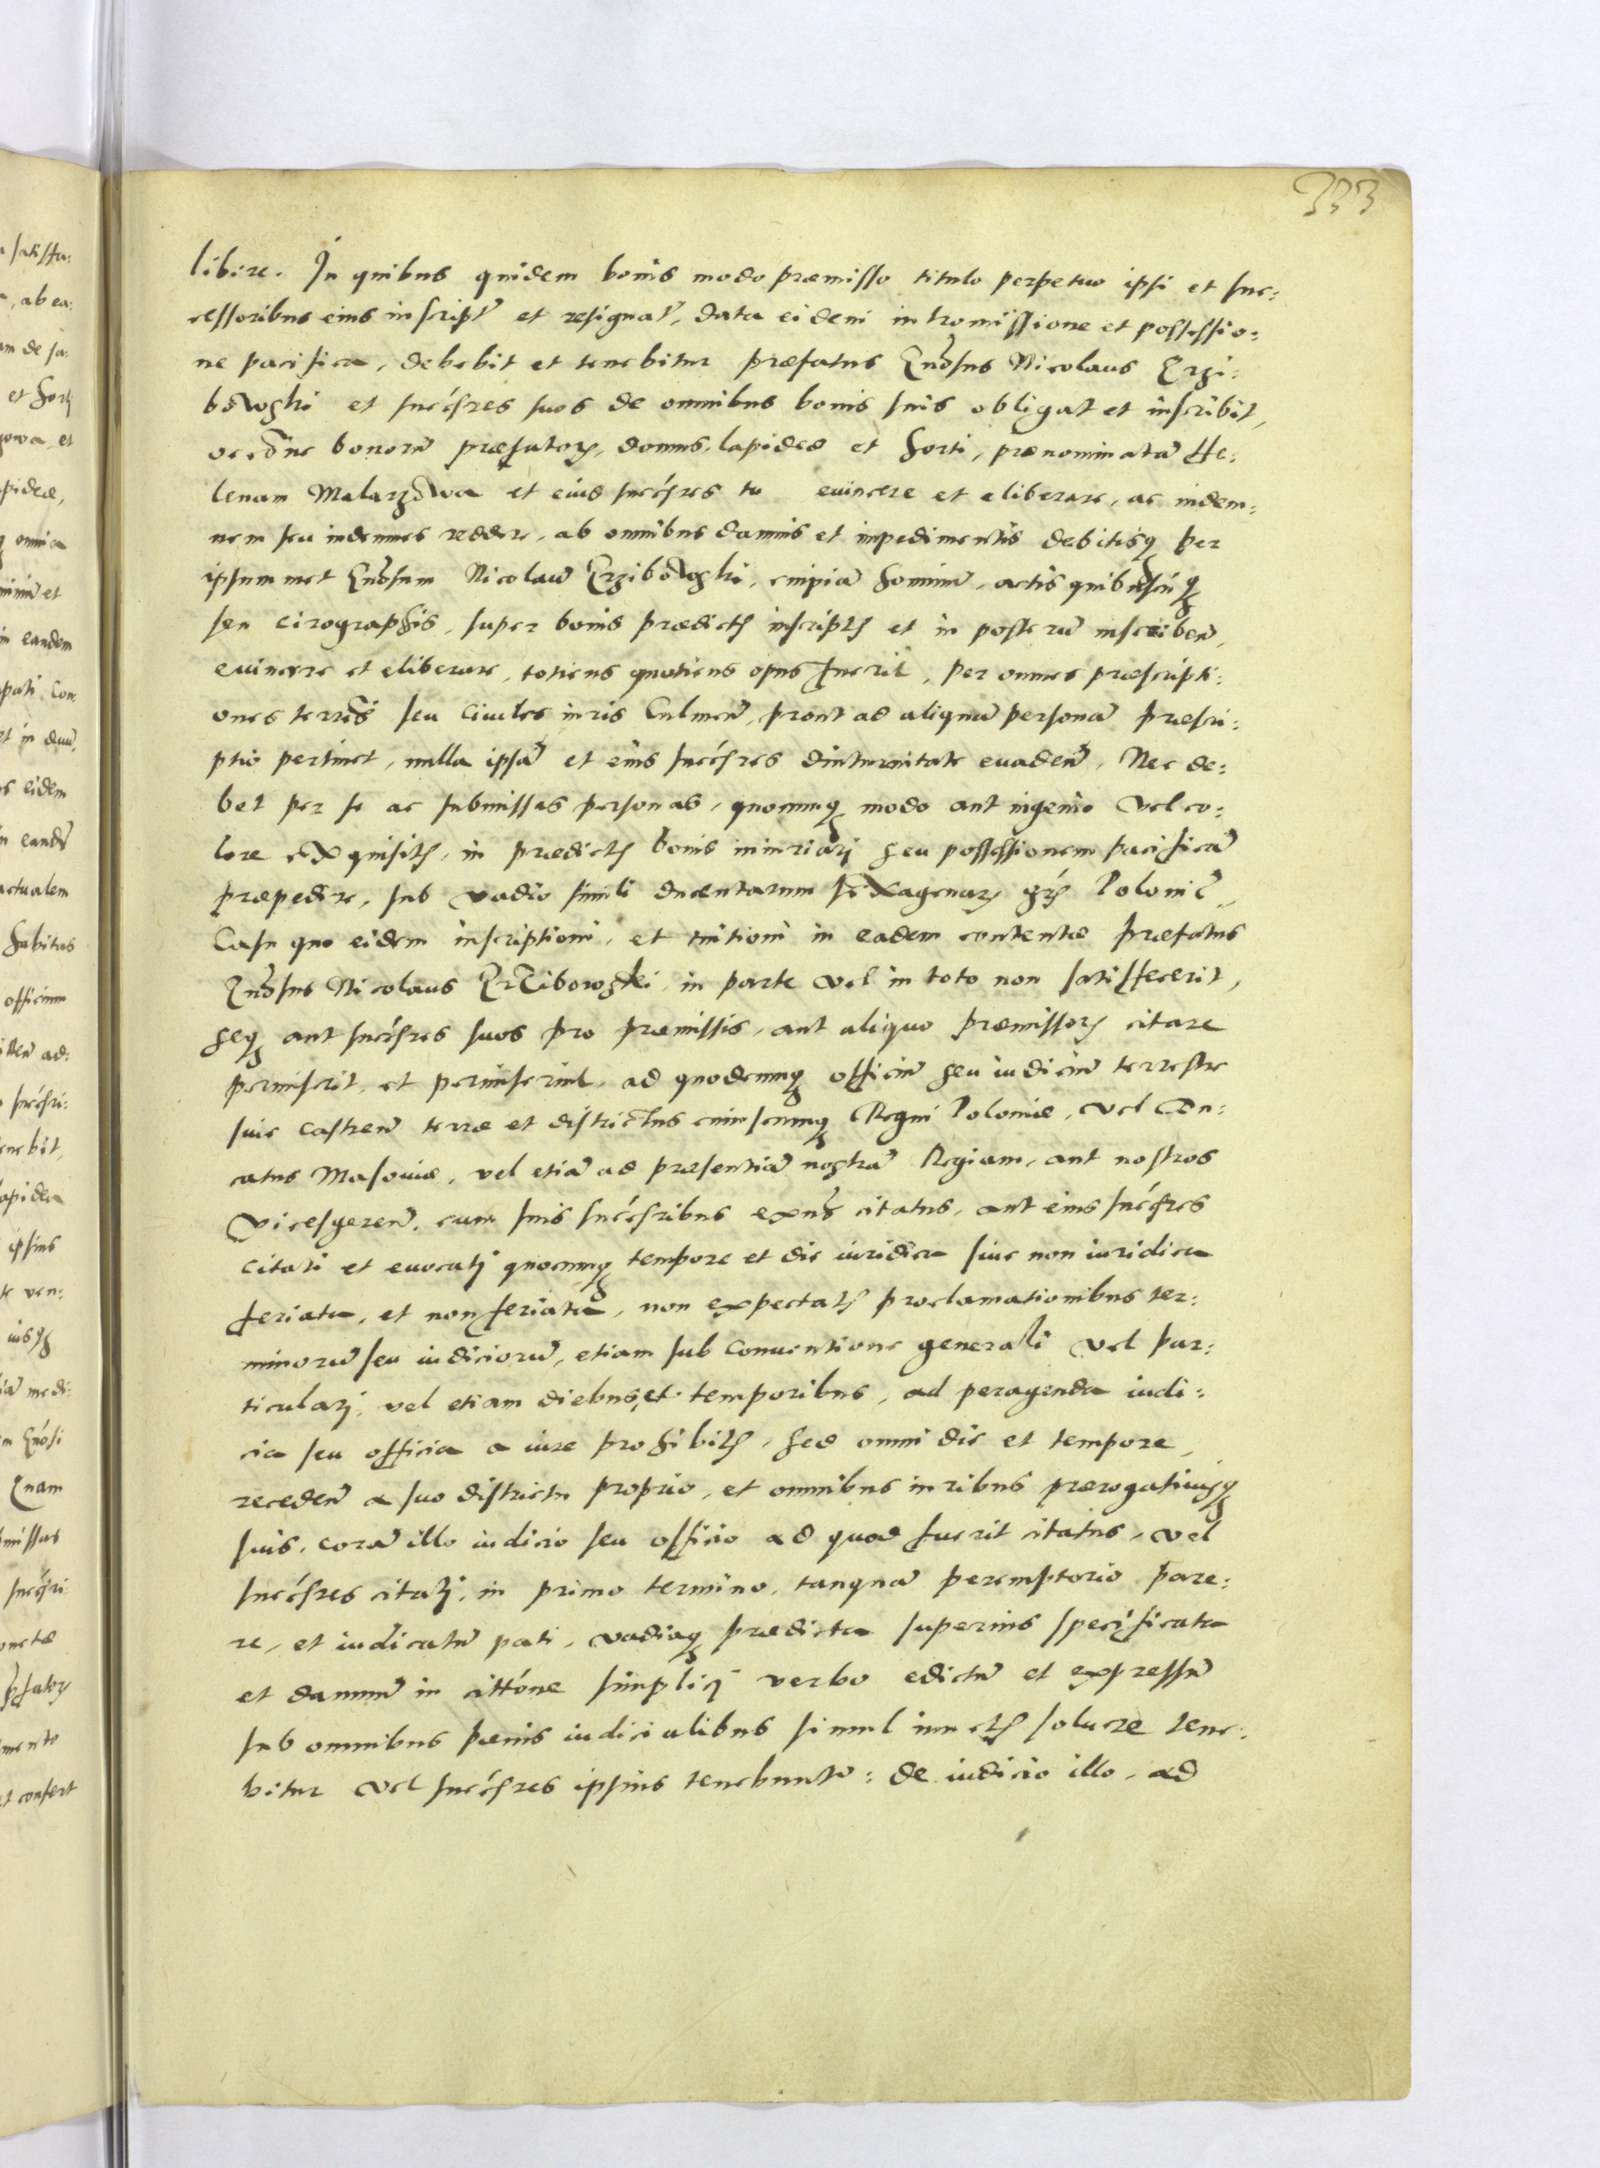 333
libire. In quibus quidem bonis modo præmisso titulo perpetuo ipsi et suc:
cessoribus eius inscript et resignat, data eidem intromissione et possessio:
ne pacifica, debebit et tenebitur præfatus Nicolaus Erzi:
bowski et succsres suos de omnibus bonis suis obligat et inscribit,
bonorū præfatorꝫ, domus lapideæ et horti, prænominatā He:
lenam et eius succsres evincere et eliberare, ac indem:
nem seu indemnes reddere, ab omnibus damnis et impedimentis debitisqꝫ per
ipsummet Nicolaū Erzibowski, cuipiā hominū, actis quibuscūqꝫ
seu cirographis, super bonis prædictis inscriptis et in posterū inscriben,
evincere et eliberare, totiens quotiens opus fuerit, per omnes præscripti:
ones terres seu civiles iuris Culmen, prout ad aliquā personā præscri:
ptio pertinet, nulla ipsā et eius succsres diuturnitate evaden, Nec de:
bet per se ac submissas personas, quocumqꝫ modo aut ingenio vel co:
lore exquisitis, in prædictis bonis iniuriari seu possessionem pacificā
præpedire, sub vadio simili ducentarum sexagenarꝫ Poloni
Casu quo eidem inscriptioni, et tuitioni in eadem contentæ præfatus
Nicolaus Erzibowski, in parte vel in toto non satisfecerit,
seqꝫ aut succsres suos pro præmissis, aut aliquo præmissorꝫ citare
permiserit, et permiserint, ad quodcumqꝫ officiū seu iudiciū terrestre
sive castren terræ et districtus cuiuscumqꝫ Regni Poloniæ, vel Du:
catus Masoviæ, vel etiā ad præsentiā nostrā Regiam, aut nostros
Vicesgeren, cum suis succsribus citatus, aut eius succsres
citati et evocati quocumqꝫ tempore et die iuridica sive non iuridica
feriata, et non feriata, non expectatis proclamationibus ter:
minorū seu iudiciorū, etiam sub conventione generali vel par:
ticulari, vel etiam diebus, et temporibus, ad peragenda iudi:
cia seu officia a iure prohibitis, sed omni die et tempore,
receden a suo districtu proprio, et omnibus iuribus prærogativisqꝫ
suis, corā illo iudicio seu officio ad quod fuerit citatus, vel
succsres citati, in primo termino, tanquā peremptorio pare:
re, et iudicatū pati, vadiaqꝫ prædicta superius specificata
et damnū in cittone simplici verbo edictū et expressū
sub omnibus pænis iudicialibus simul iunctis solvere tene:
bitur vel succsres ipsius tenebuntur: de iudicio illo, ad